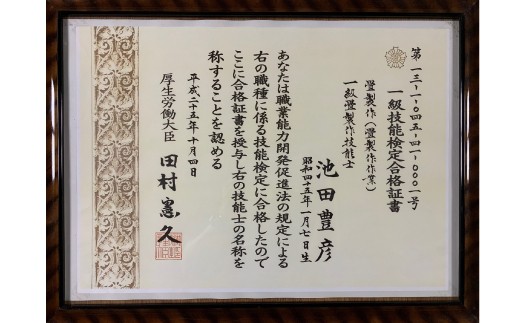 第一三-一-〇四五-四一-〇〇〇一号
一級技能検定合格証書
畳製作(畳製作作業)
一級畳製作技能士
池田豊彦
昭和四十五年一月七日生
あなたは職業能力開発促進法の規定による
右の職種に係る技能検定に合格したので
ここに合格証書を授与し右の技能士の名称を
称することを認める
平成二十五年十月四日
厚生労働大臣 田村憲久